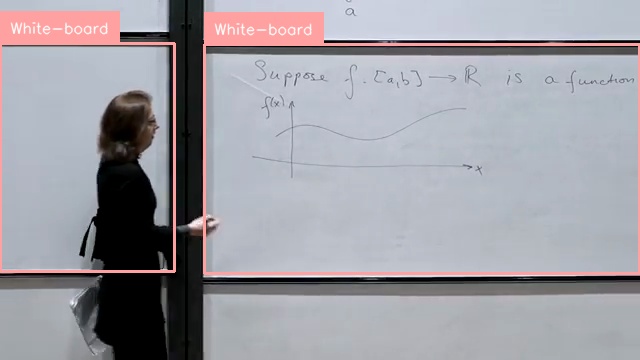 White-board
White-board
a
Suppose f. [a,b] → ℝ is a function
f(x)
x